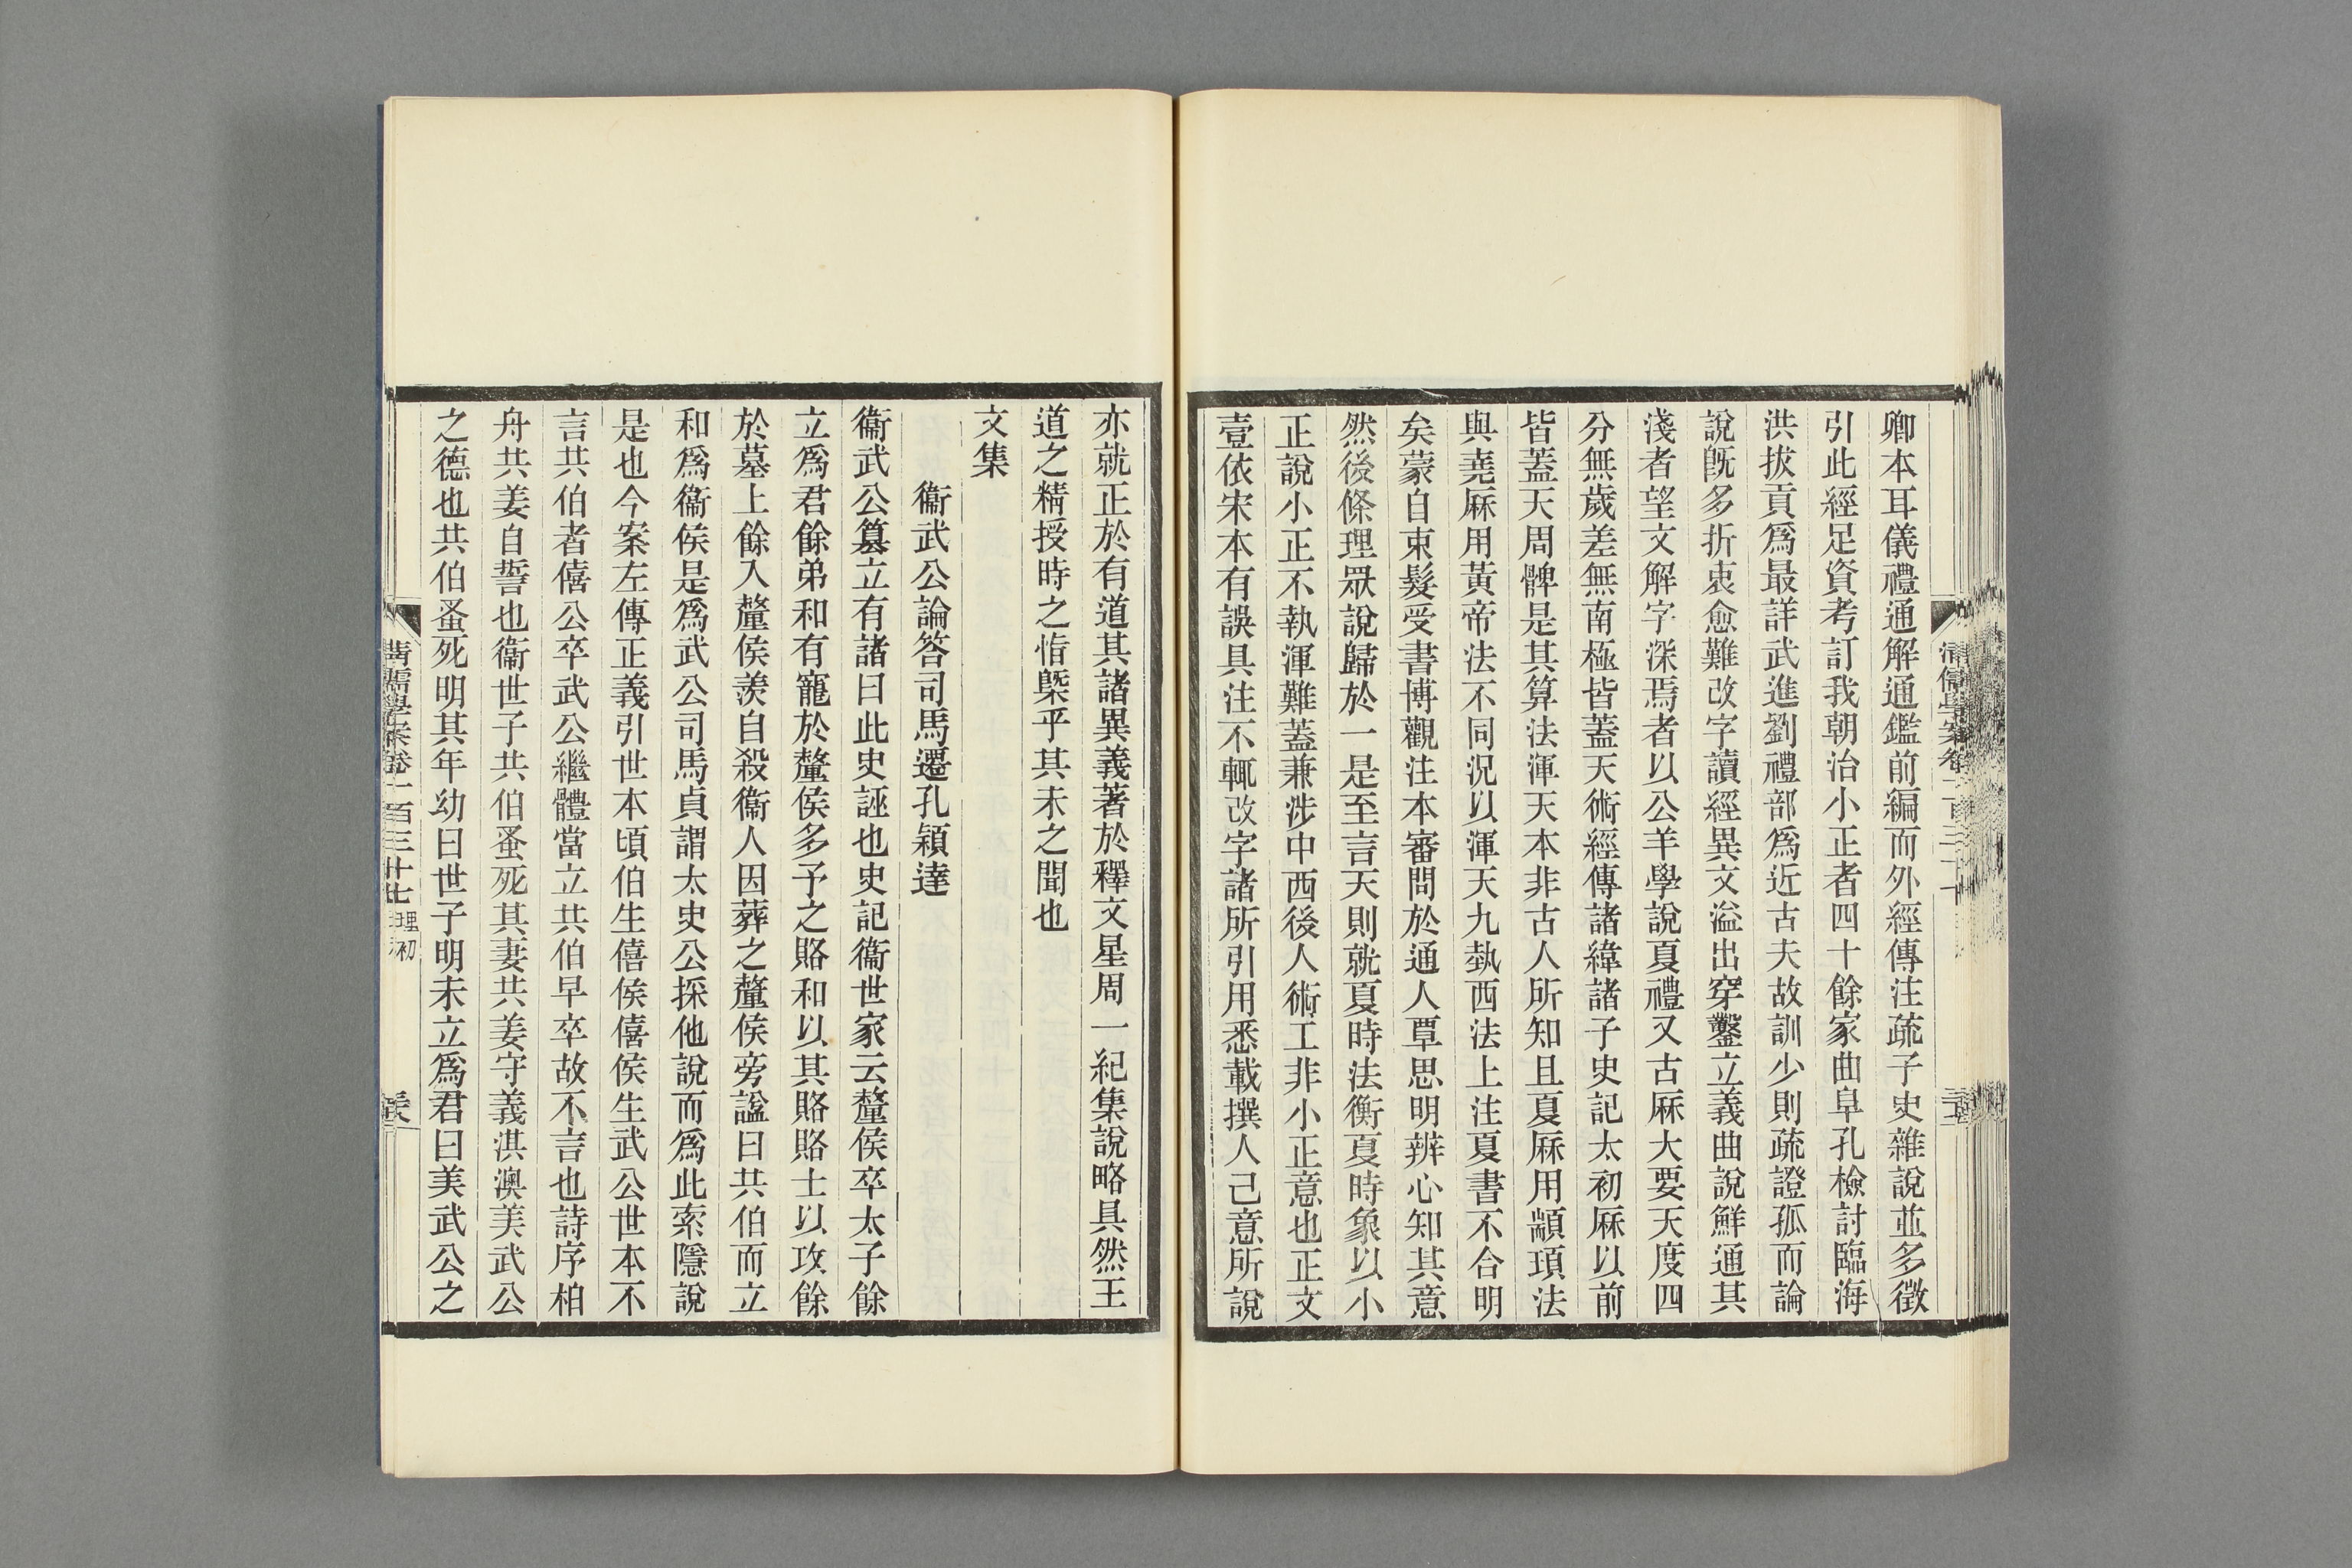 卿本耳儀禮通解通鑑前編而外經傳注疏子史雜說並多徵
引此經足資考訂我朝治小正者四十餘家曲阜孔檢討臨海
洪拔貢爲最詳武進劉禮部爲近古夫故訓少則疏證孤而論
說旣多折衷愈難改字讀經異文溢出穿鑿立義曲說鮮通其
淺者望文解字深焉者以公羊學說夏禮又古厤大要天度四
分無歲差無南極皆蓋天術經傳諸緯諸子史記太初厤以前
皆蓋天周髀是其算法渾天本非古人所知且夏厤用顓頊法
與堯厤用黃帝法不同況以渾天九執西法上注夏書不合明
矣蒙自束髮受書博觀注本審問於通人覃思明辨心知其意
然後條理眾說歸於一是至言天則就夏時法衡夏時象以小
正說小正不執渾難蓋兼涉中西後人術工非小正意也正文
壹依宋本有誤具注不輒改字諸所引用悉載撰人己意所說
亦就正於有道其諸異義著於釋文星周一紀集說略具然王
道之精授時之恉槩乎其未之聞也
文集
衞武公論答司馬遷孔穎達
衞武公篡立有諸曰此史誣也史記衞世家云釐侯卒太子餘
立爲君餘弟和有寵於釐侯多予之賂和以其賂賂士以攻餘
於墓上餘入釐侯羨自殺衞人因葬之釐侯旁諡曰共伯而立
和爲衞侯是爲武公司馬貞謂太史公採他說而爲此索隱說
是也今案左傳正義引世本頃伯生僖侯僖侯生武公世本不
言共伯者僖公卒武公繼體當立共伯早卒故不言也詩序柏
舟共姜自誓也衞世子共伯蚤死其妻共姜守義淇澳美武公
之德也共伯蚤死明其年幼曰世子明未立爲君曰美武公之
清儒學案卷一百三十七 理初